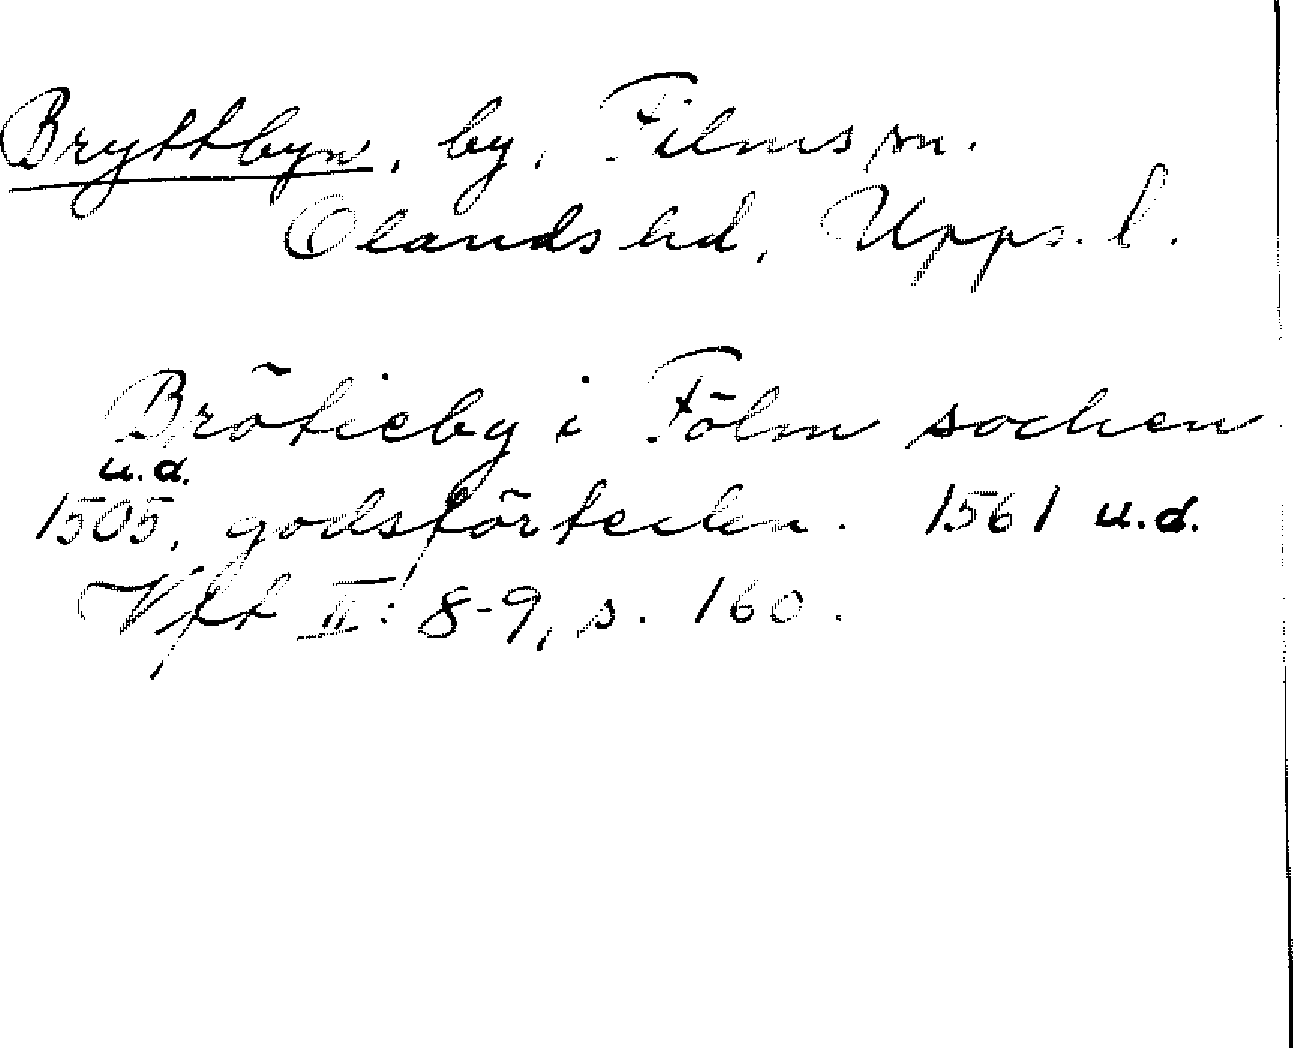 Bryttbyn, by, Films sn.
Olands hd, Upps. l.
Brötieby i Fölm sochen
u.d.
1505, godsförteckn. 1561 u.d.
Vftt II: 8-9, s. 160.